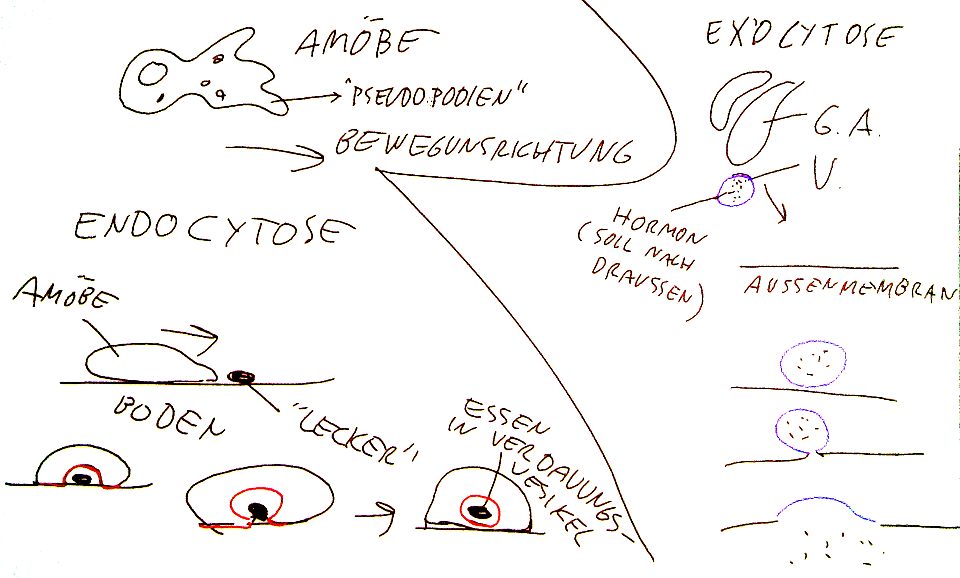 AMÖBE
"PSEUDOPODIEN"
BEWEGUNSRICHTUNG
EXOCYTOSE
G.A.
V.
HORMON
(SOLL NACH
DRAUSSEN)
AUSSENMEMBRAN
ENDOCYTOSE
AMÖBE
BODEN
"LECKER"
ESSEN
IN VERDAUUNGS-
VESIKEL